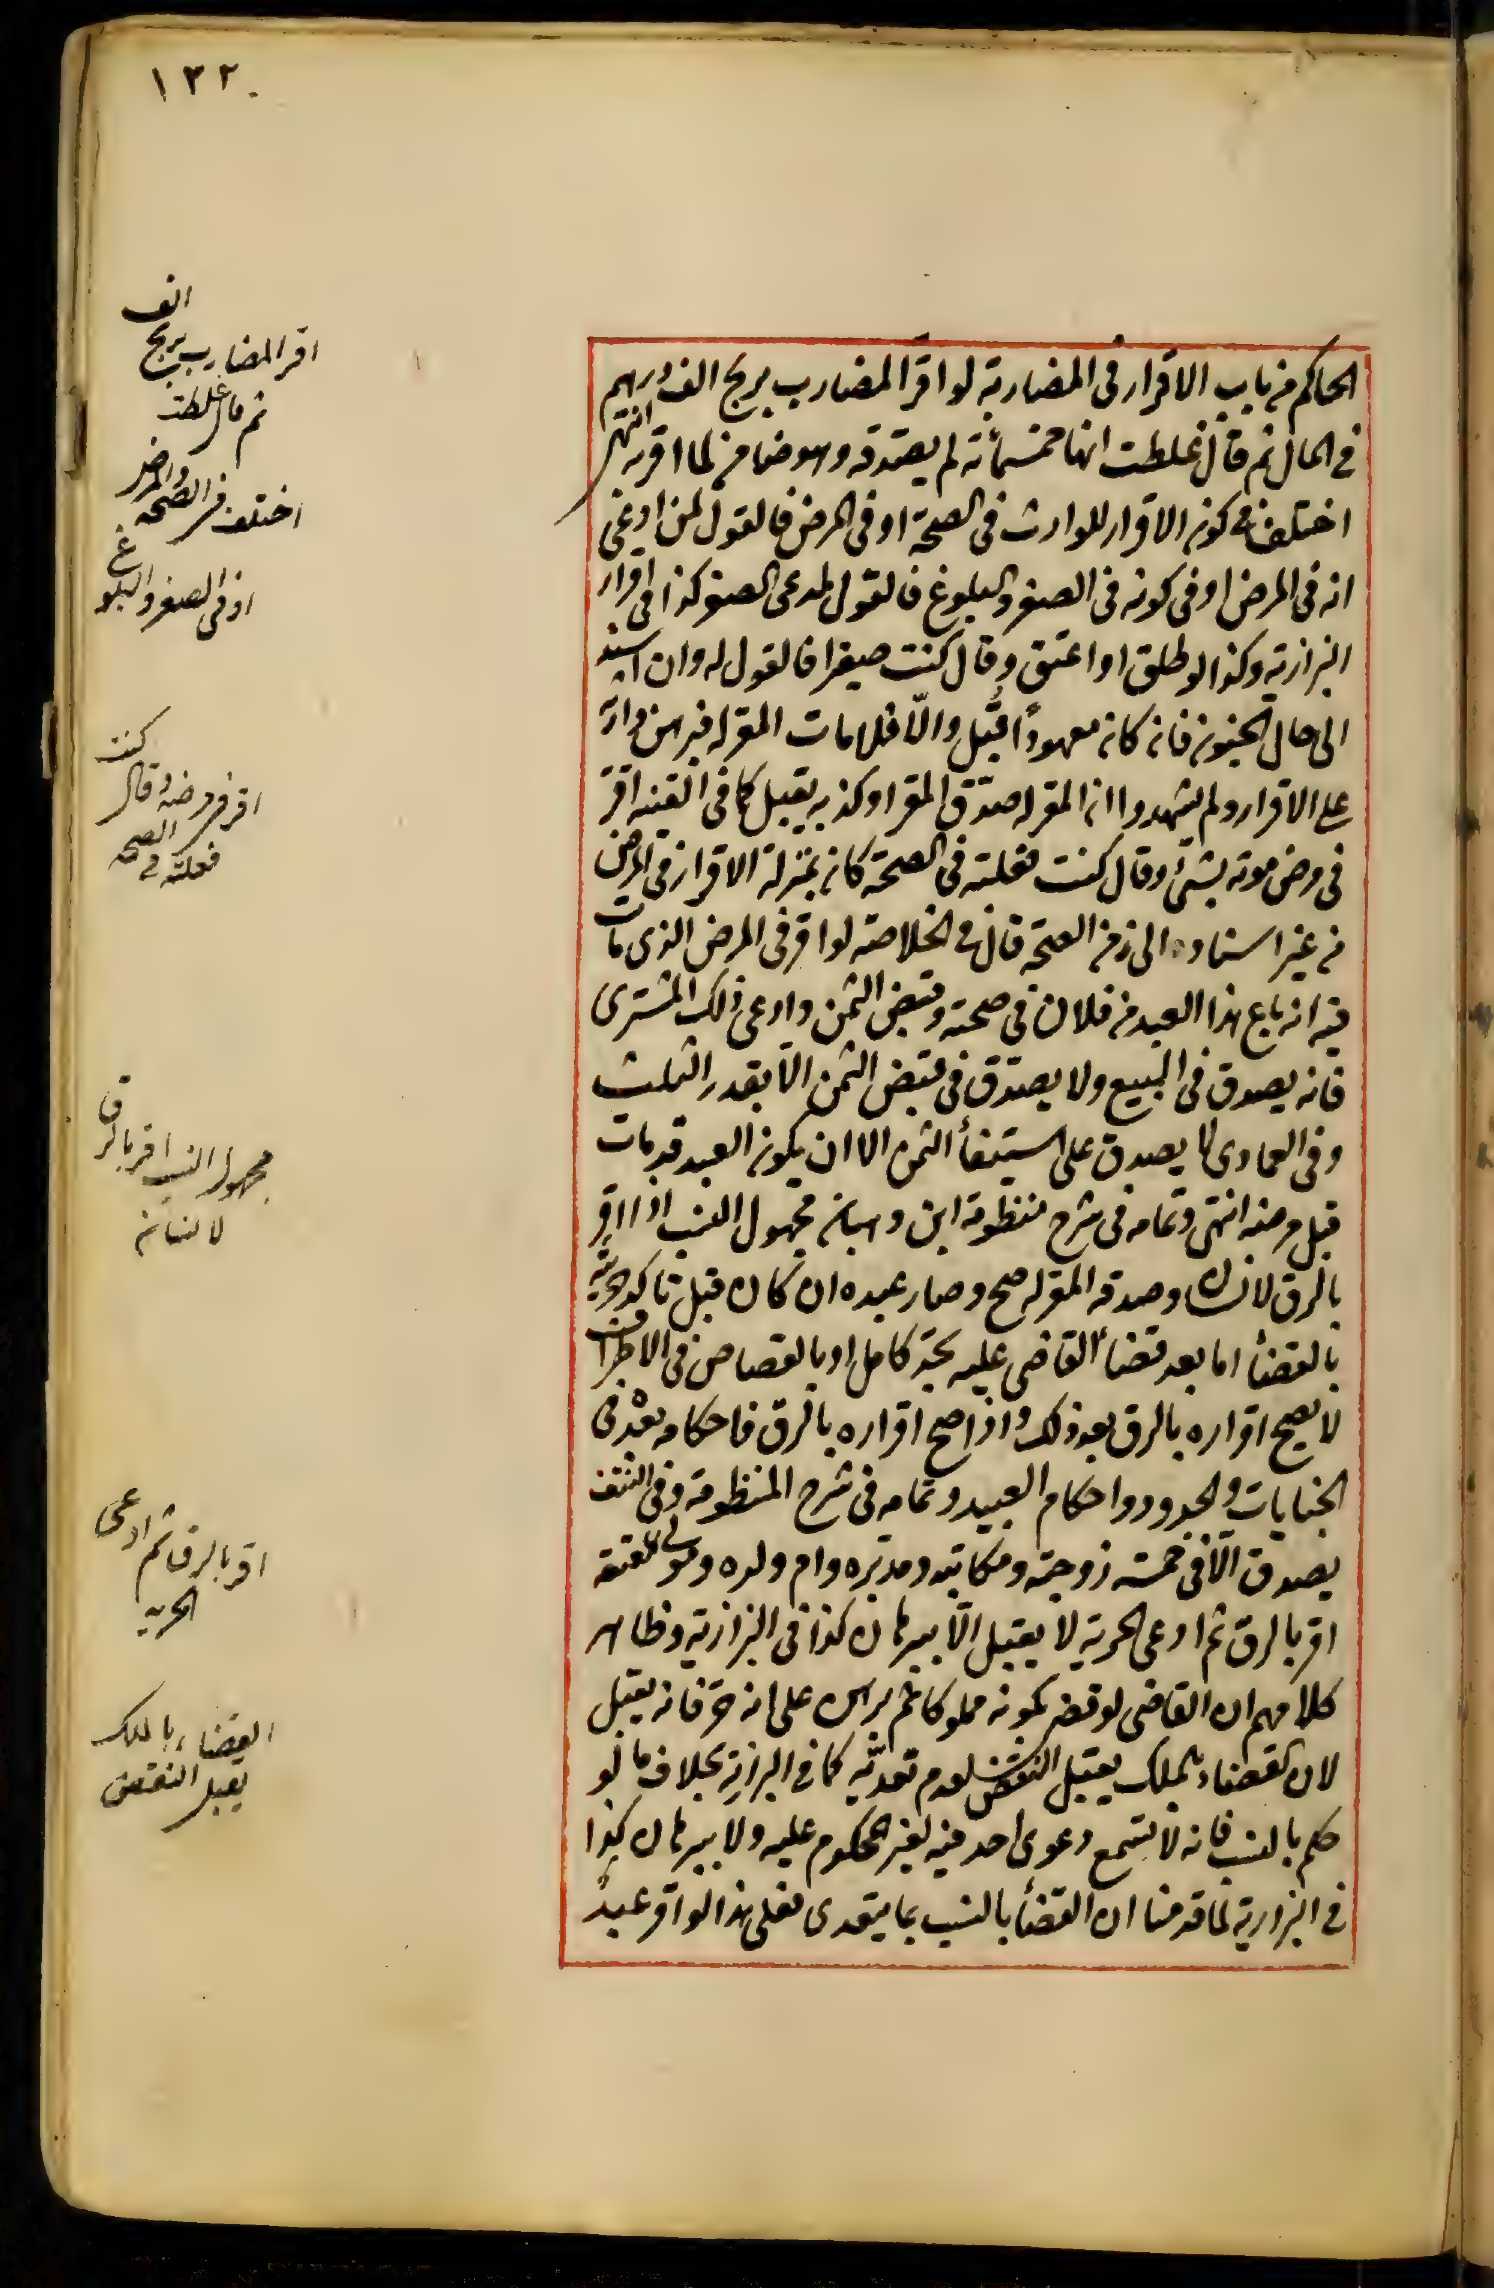 ١٢٢
الحاكم من باب الاقرار فى المضاربة لو اقر المضارب بربح الف درهم
فى المال ثم قال غلطت انها خمسمأئة لم يصدق وهو ضامن لما اقر به انتهى
اختلفا فى كون الاقرار للوارث فى الصحة او فى المرض فالقول لمن ادعى
انه فى المرض او فى كونه فى الصغر والبلوغ فالقول لمدعى الصغر كذا فى اقرار
البزازية وكذا لو طلق او اعتق وقال كنت صغيرا فالقول له وان اسند
الى حال الجنون فان كان معهودًا قبل والّا فلا مات المقر له فبرهن وارثه
على الاقرار ولم يشهدوا ان المقر له صدّق المقر او كذبه يقبل كما فى القنيه اقرّ
فى مرض موته بشئ وقال كنت فعلته فى الصحة كان بمنزلة الاقرار فى المرض
من غير اسناده الى زمن الصحة قال فى الخلاصة لو اقر فى المرض الذى مات
فيه انه باع هذا العبد من فلان فى صحته وقبض الثمن وادعى ذلك المشترى
فانه يصدق فى البيع ولا يصدّق فى قبض الثمن الّا بقدر الثلث
وفى العمادى لا يصدق على استيفأ الثمن الا ان يكون العبد قد مات
قبل مرضه انتهى وتمامه فى شرح منظومة ابن وهبان مجهول النسب اذا اقر
بالرق لانسان وصدقه المقر له صح وصار عبده ان كان قبل تأكد حريّته
بالقضأ اما بعد قضأ القاضى عليه بحدّ كامل او بالقصاص فى الاطراف
لا يصح اقراره بالرق بعد ذلك واذا صح اقراره بالرق فاحكامه بعده فى
الجنايات والحدود واحكام العبيد وتمامه فى شرح المنظومة وفى النتف
يصدق الّا فى خمسة زوجته ومكاتبه ومدبّره وام ولده ومولى معتقه
اقر بالرق ثم ادعى الحرية لا يقبل الّا ببرهان كذا فى البزازية وظاهر
كلامهم ان القاضى لو قضى بكونه مملوكا ثم برهن على انه حرّ فانه يقبل
لان القضاء بالملك يقبل النقض لعدم تعديه كما فى البزازية بخلاف ما لو
حكم بالنسب فانه لا تسمع دعوى احد فيه لغير المحكوم عليه ولا ببرهان كذا
فى البزازية لما قدمنا ان القضأ بالنسب بما يتعدى فعلى هذا لو اقر عبد
الف
اقر المضارب بربح
ثم قال غلطت
اختلفا فى الصحة والمرض
او فى الصغر والبلوغ
اقر فى مرضه وقال كنت
فعلته فى الصحة
مجهول النسب اقر بالرق
لانسان
اقر بالرق ثم ادعى
الحرية
القضاء بالملك
يقبل النقض